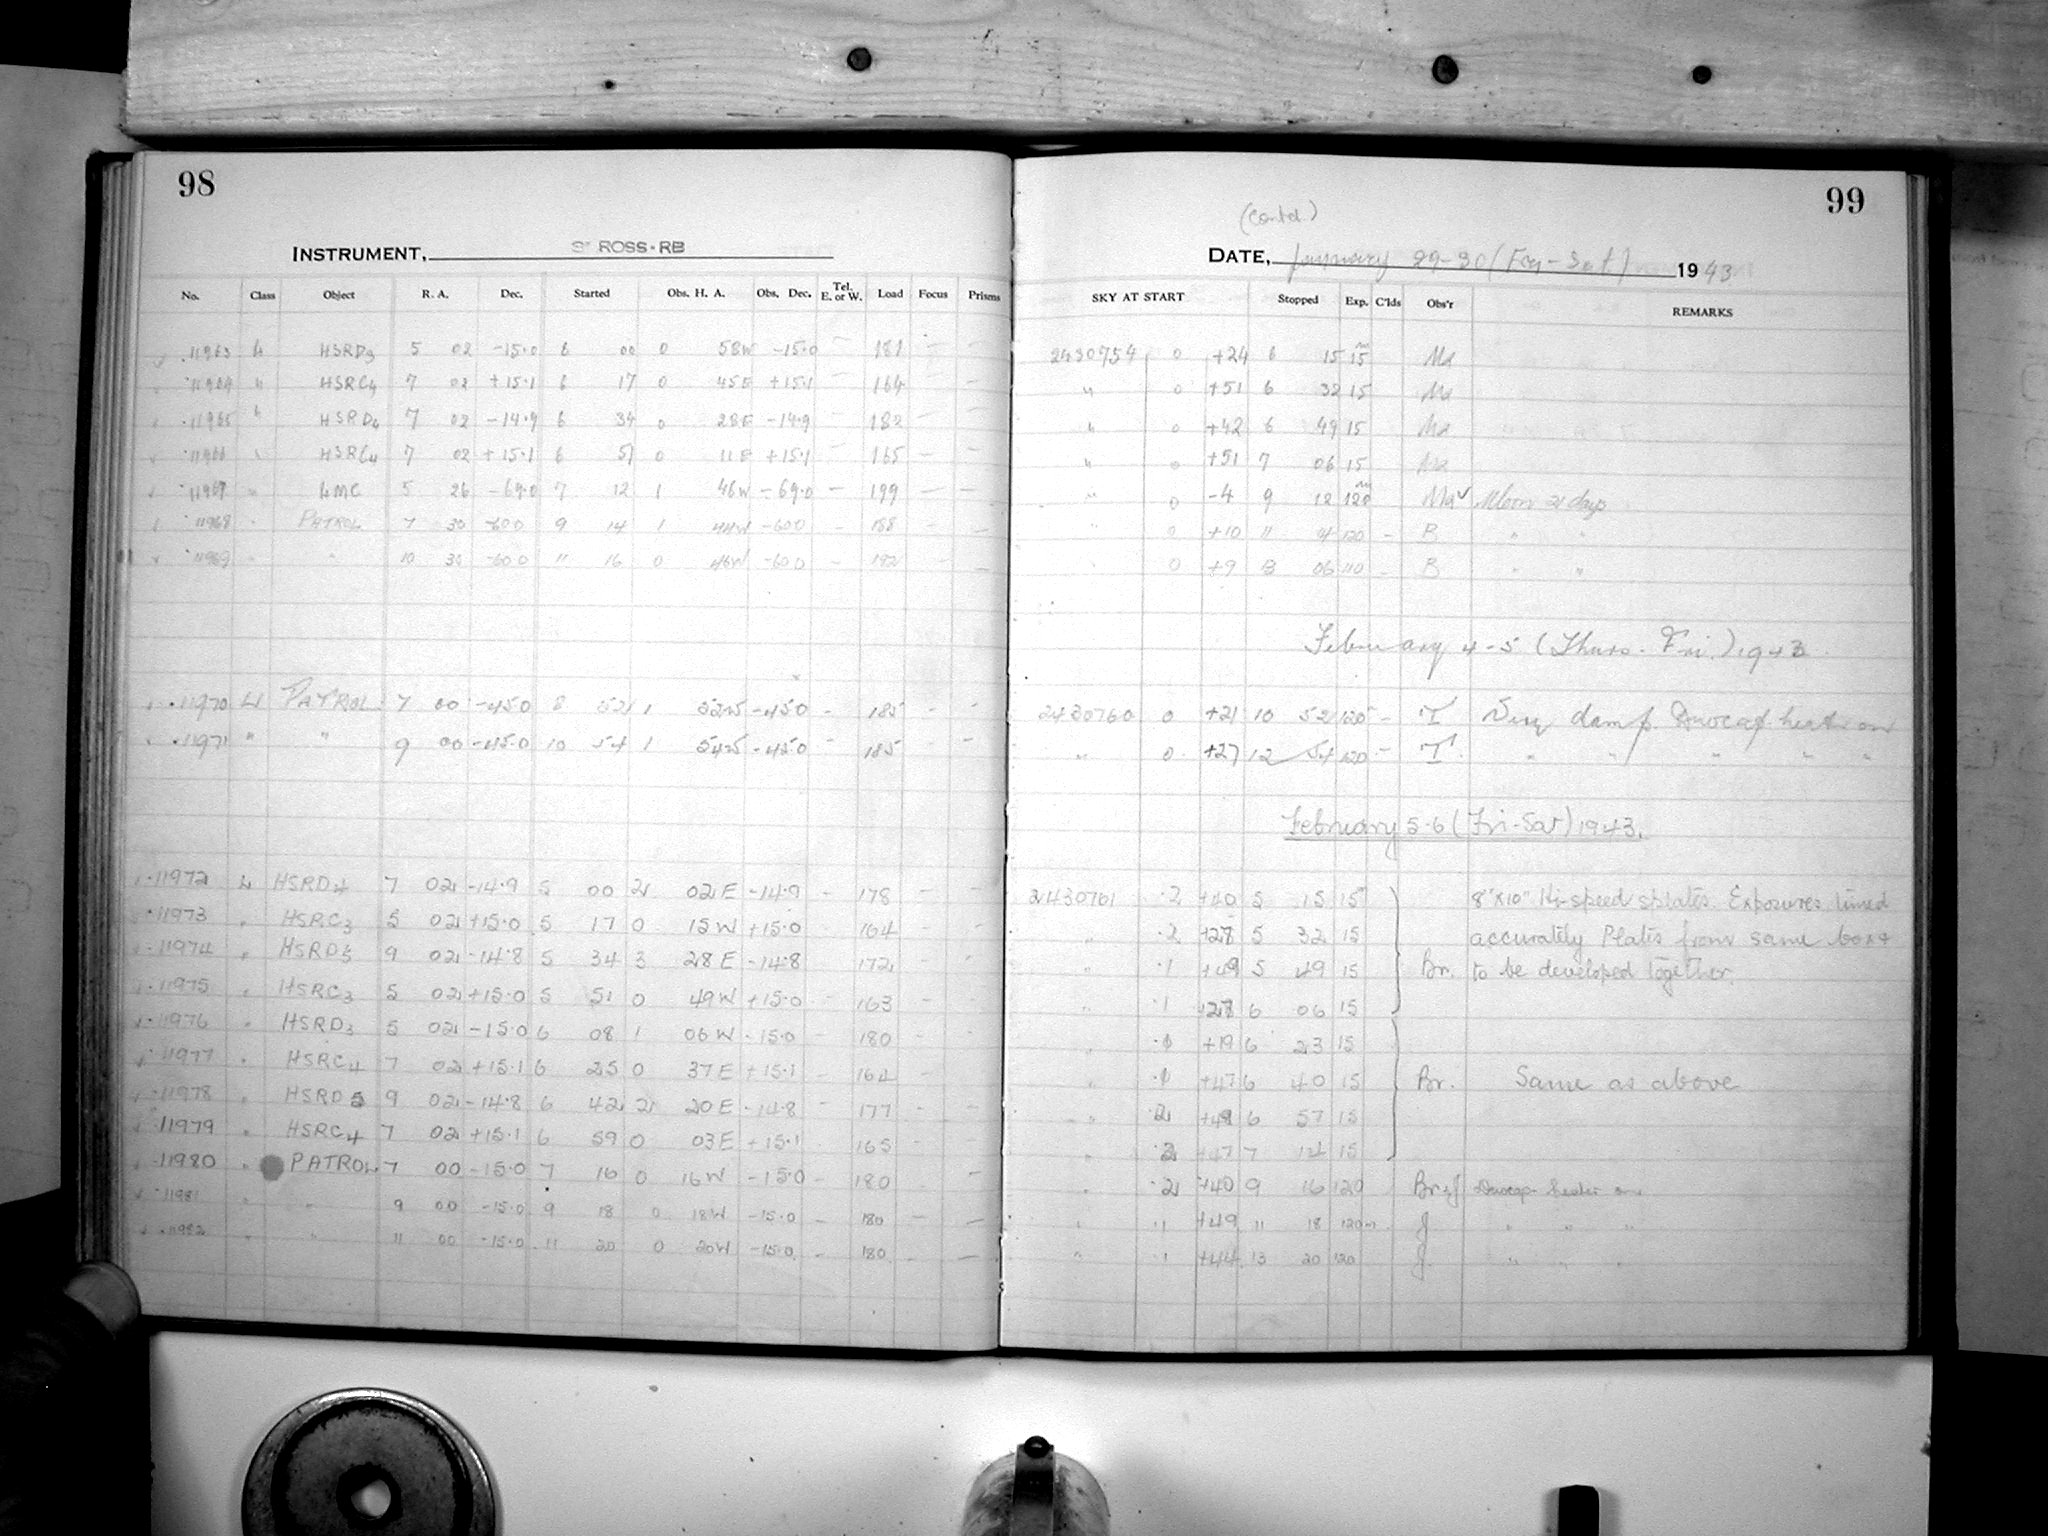 98
INSTRUMENT, 3" ROSS-RB
No. Class Object R. A. Dec. Started Obs. H. A. Obs. Dec. Tel. E. or W. Load Focus Prisms
11963 HSRD3 5 02 -15.0 6 00 0 58W -15.0 — 181 — —
11964 " HSRC4 7 02 +15.1 6 17 0 45E +15.1 — 164 — —
11965 " HSRD4 7 02 -14.9 6 34 0 28E -14.9 — 182 — —
11966 " HSRC4 7 02 +15.1 6 51 0 11E +15.1 — 165 — —
11967 " LMC 5 26 -69.0 7 12 1 46W -69.0 — 199 — —
11968 " PATROL 7 30 -60.0 9 14 1 44W -60.0 — 188 — —
11969 " " 10 30 -60.0 11 16 0 46W -60.0 — 192 — —
11970 PATROL 7 00 -45.0 8 52 1 52W -45.0 - 185
11971 " " 9 00 -45.0 10 54 1 54W -45.0 - 185
11972 L HSRD4 7 02 -14.9 5 00 2 02E -14.9 - 178 - -
11973 " HSRC3 5 02 +15.0 5 17 0 15W +15.0 - 164 - -
11974 " HSRD5 9 02 -14.8 5 34 3 28E -14.8 - 172 - -
11975 " HSRC3 5 02 +15.0 5 51 0 49W +15.0 - 163 - -
11976 " HSRD3 5 02 -15.0 6 08 1 06W -15.0 - 180 - -
11977 " HSRC4 7 02 +15.1 6 25 0 37E +15.1 - 164 - -
11978 " HSRD5 9 02 -14.8 6 42 2 20E -14.8 - 177 - -
11979 " HSRC4 7 02 +15.1 6 59 0 03E +15.1 165 - -
11980 " PATROL 7 00 -15.0 7 16 0 16W -15.0 - 180 -
11981 " " 9 00 -15.0 9 18 0 18W -15.0 - 180 - -
11982 " " 11 00 -15.0 11 20 0 20W -15.0 - 180 - -
99
(Contd.)
DATE, January 29-30 (Fri-Sat) 1943
SKY AT START Stopped Exp. C'lds Obs'r REMARKS
2430754 0 +24 6 15 15m Ma
" 0 +51 6 32 15 Ma
" 0 +42 6 49 15 Ma
" 0 +51 7 06 15 Ma
" 0 -4 9 12 120m Ma Moon 21 days
" 0 +10 11 120 - B " "
" 0 +9 13 06 110 - B " "
February 4-5 (Thurs-Fri.) 1943
2430760 0 +21 10 52 120 - T Very damp. Dewcap heater on
" 0 +27 12 54 120 - T " " " " "
February 5-6 (Fri-Sat) 1943.
2430761 .2 +40 5 15 15 8"x10" Hi-speed splates. Exposures timed
" .2 +28 5 32 15 accurately Plates from same box &
" .1 +49 5 49 15 Br. to be developed together.
" .1 +28 6 06 15
" +19 6 23 15
" +47 6 40 15 Br. Same as above
" .2 +48 6 57 15
" .2 +47 7 14 15
" .2 +40 9 16 120 Dewcap heater on
" .1 +49 11 18 120m J " " "
" .1 +44 13 20 120 J " " "